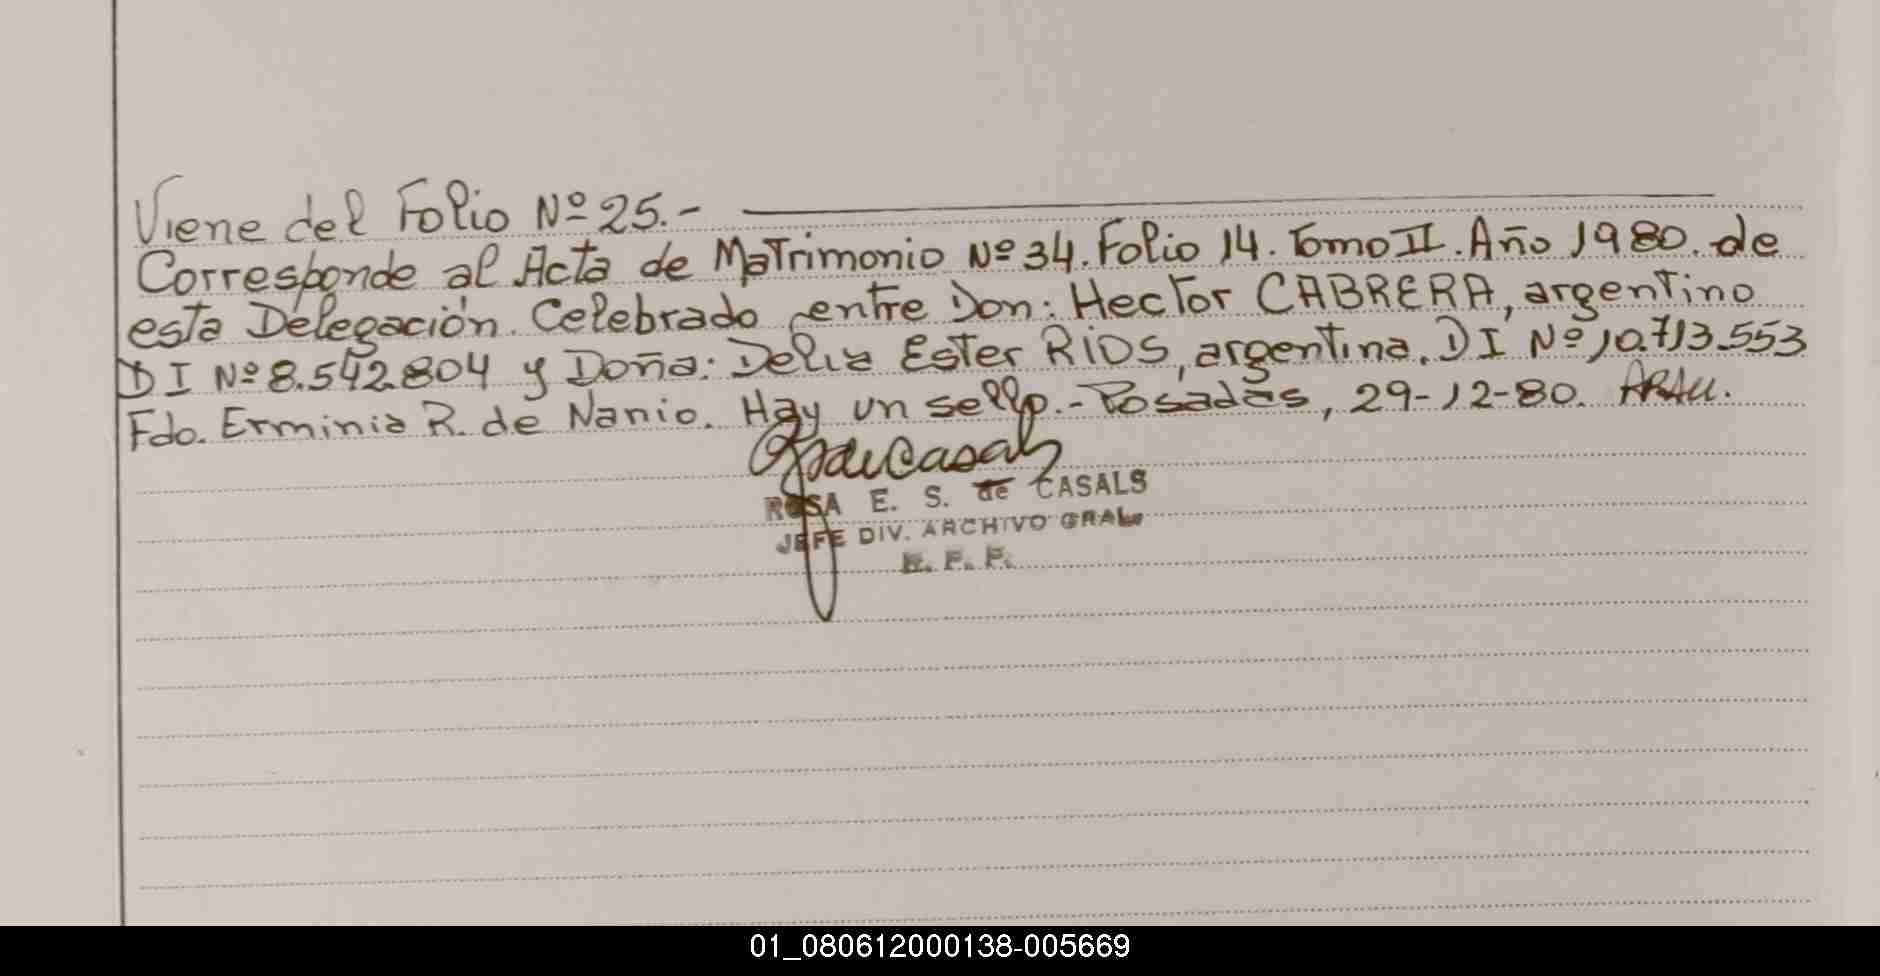 Viene del Folio Nº 25.-
Corresponde al Acta de Matrimonio Nº 34. Folio 14. Tomo II. Año 1980. de
esta Delegación. Celebrado entre Don: Hector CABRERA, argentino
DI Nº 8.542.804 y Doña: Delia Ester RIOS, argentina. DI Nº 10.713.553
Fdo. Erminia R. de Nanio. Hay un sello.- Posadas, 29-12-80.
ROSA E. S. de CASALS
JEFE DIV. ARCHIVO GRAL.
01_080612000138-005669